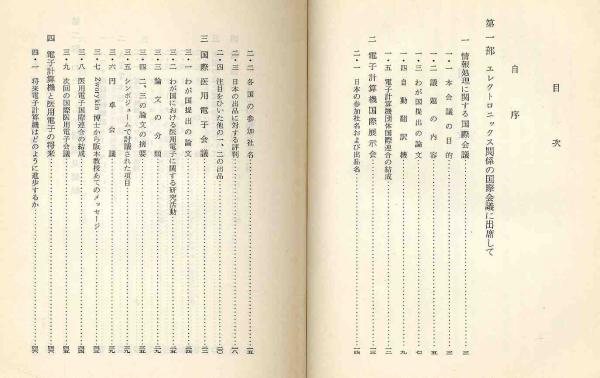 目次
自序
第一部 エレクトロニックス関係の国際会議に出席して
一 情報処理に関する国際会議 三
一・一 本会議の目的 三
一・二 議題の内容 五
一・三 わが国提出の論文 七
一・四 自動翻訳機 九
一・五 電子計算機団体国際連合の結成 三
二 電子計算機国際展示会 三
二・一 日本の参加社名および出品名 一四
二・二 各国の参加社名 一五
二・三 日本の出品に対する評判 一六
二・四 注目をひいた他の一、二の出品 二〇
三 国際医用電子会議
三・一 わが国提出の論文
三・二 わが国における医用電子に関する研究活動
三・三 論文の分類
三・四 二、三の論文の摘要
三・五 シンポジュームで討議された項目
三・六 円卓会議
三・七 Zworykin 博士から阪本教授あてのメッセージ
三・八 医用電子国際連合の結成
三・九 次回の国際医用電子会議
四 電子計算機と医用電子の将来
四・一 将来電子計算機はどのように進歩するか